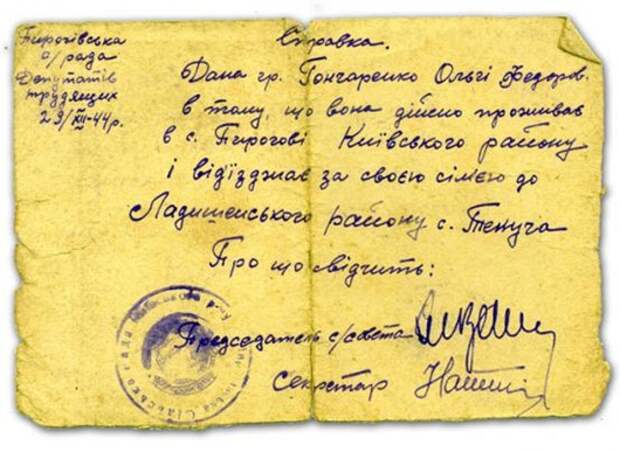 Пирогівська
с/рада
Депутатів
трудящих
29/XII-44р.
Справка.
Дана гр. Гончаренко Ользі Федоров.
в тому, що вона дійсно проживає
в с. Пирогові Київського району
і від'їзджає за своєю сім'єю до
Ладиженського району с. Текуча
Про що свідчить:
Председатель с/совета
Секретар